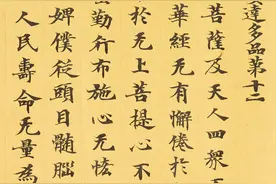 達多品第十二
菩薩及天人四衆
華經无有懈惓於
於无上菩提心不
勤行布施心无悋
婢僕從頭目髓腦
人民壽命无量為